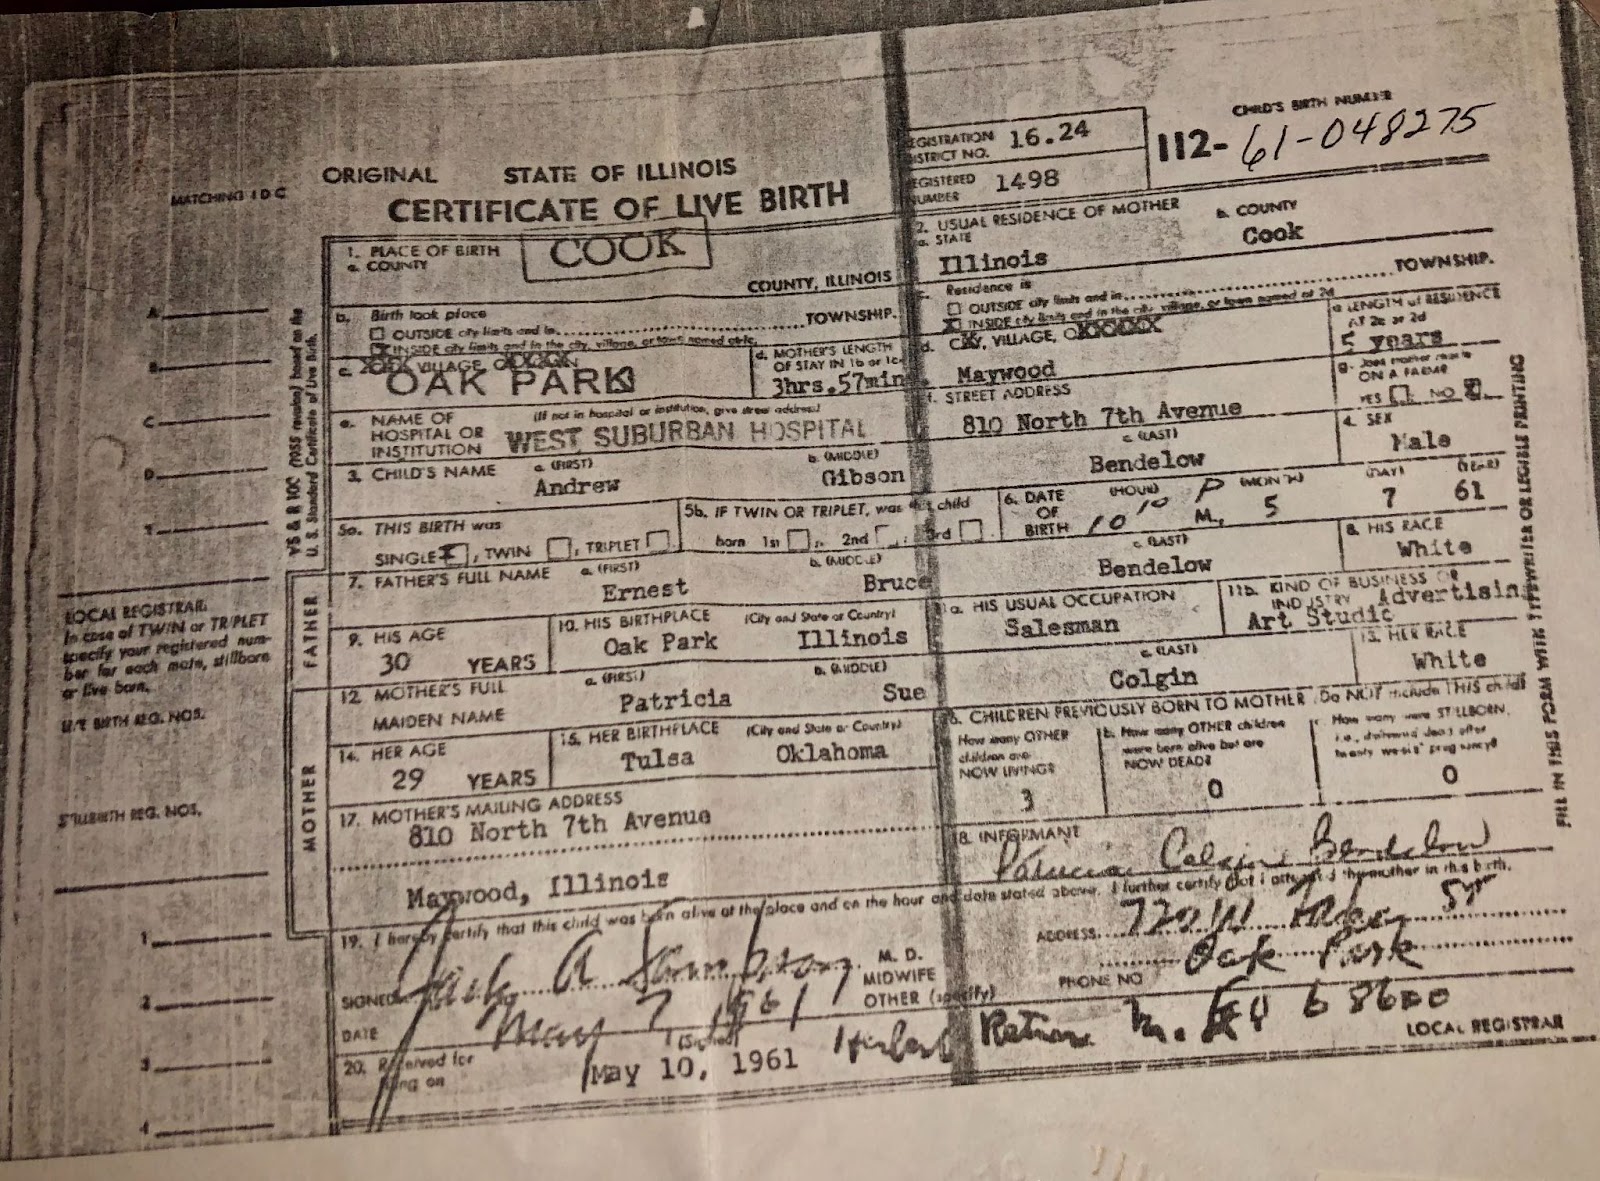 CHILD'S BIRTH NUMBER
REGISTRATION DISTRICT NO. 16.24
112- 61-048275
REGISTERED NUMBER 1498
MATCHING I D C
ORIGINAL STATE OF ILLINOIS
CERTIFICATE OF LIVE BIRTH
1. PLACE OF BIRTH
a. COUNTY
COOK
COUNTY, ILLINOIS
2. USUAL RESIDENCE OF MOTHER
a. STATE
b. COUNTY
Illinois
Cook
b. Birth took place
OUTSIDE city limits and in TOWNSHIP.
INSIDE city limits and in the city, village, or town named
c. VILLAGE,
OAK PARK
d. MOTHER'S LENGTH OF STAY IN 1b or 1c
3hrs.57min
c. Residence is
OUTSIDE city limits and in TOWNSHIP.
INSIDE city limits and in the city, village, or town named at 2d
d. VILLAGE,
Maywood
e. LENGTH of RESIDENCE AT 2c or 2d
5 years
f. STREET ADDRESS
810 North 7th Avenue
ON A FARM?
YES NO X
e. NAME OF HOSPITAL OR INSTITUTION
(If not in hospital or institution, give street address)
WEST SUBURBAN HOSPITAL
3. CHILD'S NAME
a. (FIRST)
Andrew
b. (MIDDLE)
Gibson
c. (LAST)
Bendelow
4. SEX
Male
5a. THIS BIRTH was
SINGLE X, TWIN, TRIPLET
5b. IF TWIN OR TRIPLET, was this child
born 1st, 2nd, 3rd
6. DATE OF BIRTH
(HOUR) (MONTH) (DAY) (YEAR)
10 10 P M., 5 7 61
FATHER
7. FATHER'S FULL NAME
a. (FIRST)
Ernest
b. (MIDDLE)
Bruce
c. (LAST)
Bendelow
8. HIS RACE
White
9. HIS AGE
30 YEARS
10. HIS BIRTHPLACE (City and State or Country)
Oak Park Illinois
11a. HIS USUAL OCCUPATION
Salesman
11b. KIND OF BUSINESS OR INDUSTRY Advertising
Art Studio
MOTHER
12. MOTHER'S FULL MAIDEN NAME
a. (FIRST)
Patricia
b. (MIDDLE)
Sue
c. (LAST)
Colgin
13. HER RACE
White
14. HER AGE
29 YEARS
15. HER BIRTHPLACE (City and State or Country)
Tulsa Oklahoma
16. CHILDREN PREVIOUSLY BORN TO MOTHER (Do NOT include THIS child)
How many OTHER children are NOW LIVING?
3
b. How many OTHER children were born alive but are NOW DEAD?
0
c. How many were STILLBORN,
0
17. MOTHER'S MAILING ADDRESS
810 North 7th Avenue
Maywood, Illinois
18. INFORMANT
Patricia Colgin Bendelow
19. I hereby certify that this child was born alive at the place and on the hour and date stated above. I further certify that I attended the mother in this birth.
SIGNED
M. D.
MIDWIFE
OTHER (specify)
DATE May 7 1961
ADDRESS
Oak Park
PHONE NO
20. Received for filing on
May 10, 1961
(Signed)
LOCAL REGISTRAR
VS & R 10C (1955 revision) based on the U. S. Standard Certificate of Live Birth.
LOCAL REGISTRAR:
In case of TWIN or TRIPLET
specify your registered num-
ber for each mate, stillborn
or live born.
LIVE BIRTH REG. NOS.
A
B
C
D
STILLBIRTH REG. NOS.
1
2
3
4
FILL IN THIS FORM WITH TYPEWRITER OR LEGIBLE PRINTING